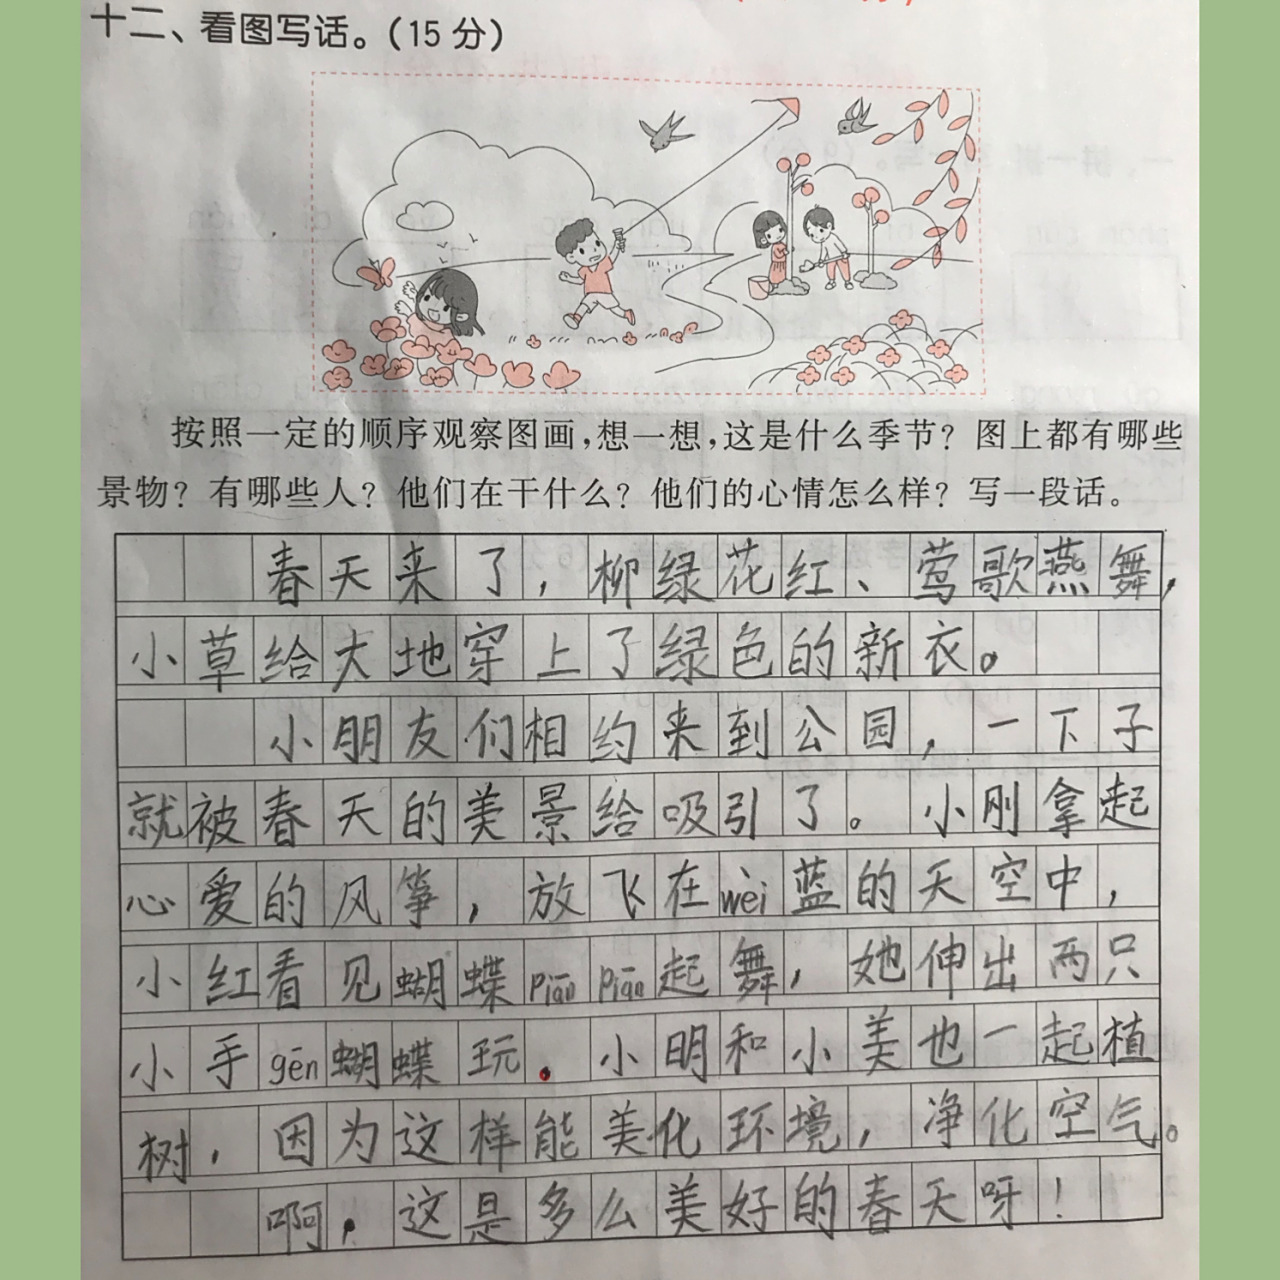 十二、看图写话。（15 分）
按照一定的顺序观察图画，想一想，这是什么季节？图上都有哪些
景物？有哪些人？他们在干什么？他们的心情怎么样？写一段话。
春天来了，柳绿花红、莺歌燕舞，
小草给大地穿上了绿色的新衣。
小朋友们相约来到公园，一下子
就被春天的美景给吸引了。小刚拿起
心爱的风筝，放飞在wèi蓝的天空中，
小红看见蝴蝶piāo piāo起舞，她伸出两只
小手gēn蝴蝶玩。小明和小美也一起植
树，因为这样能美化环境，净化空气。
啊，这是多么美好的春天呀！